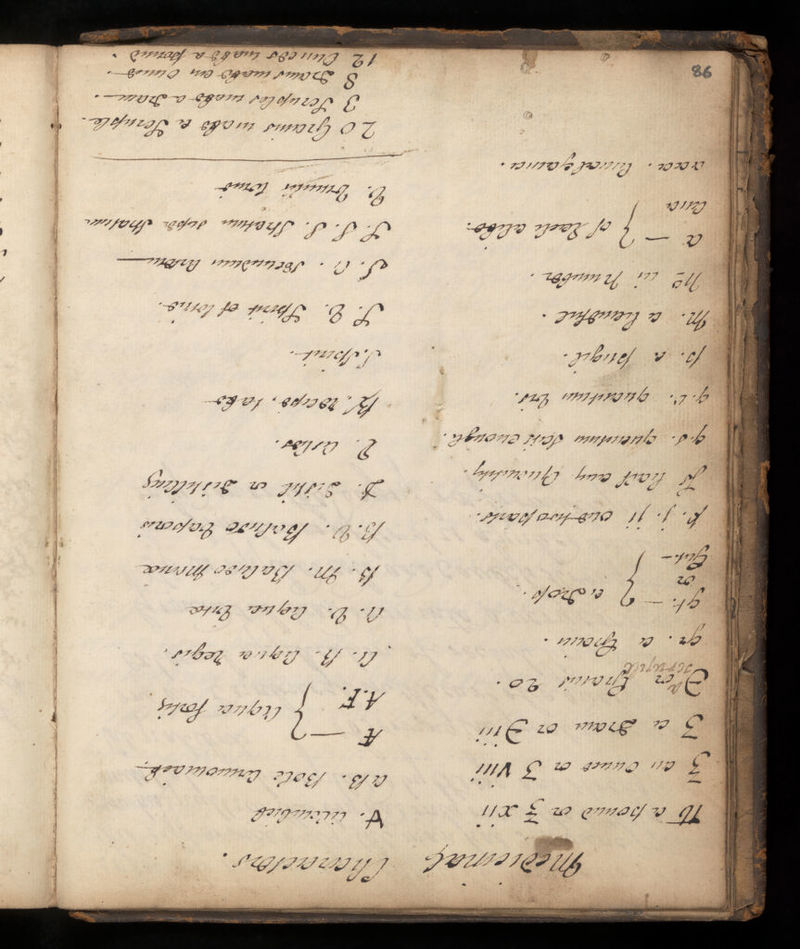 Medicinal Characters.
℔ a pound or ℥ xii
℥ an ounce or ʒ viii
ʒ a dram or ℈ iii
℈ or grains 20.
a scruple
gr. a Grain.
gt. or Gut. } a drop.
p. j. ij one two parts.
ß half any Quantity.
q.s. quantum
q.v. quantum vis.
p. a pugil.
M. a handful.
No in Number.
a — ana } of each alike.
aaa. Amalgama.
∀. Alembick
aB. Bole Armoniack
Æ — A.F. } Aqua fortis.
A. R. Aqua regis.
A. V. Aqua Vitæ
B. M. Balneo Mariæ
B. V. Balneo Vaporis
D. Distil or Distilling
ashes.
℞. recipe. take
S. Spirit.
S. V. Spirit of wine.
S. A. secundum Artem
S. S. S. Stratum super Stratum
20 Grains make a Scruple.
3 Scruples make a Dram.
8 Drams make an Ounce.
12 Ounces make a pound.
86